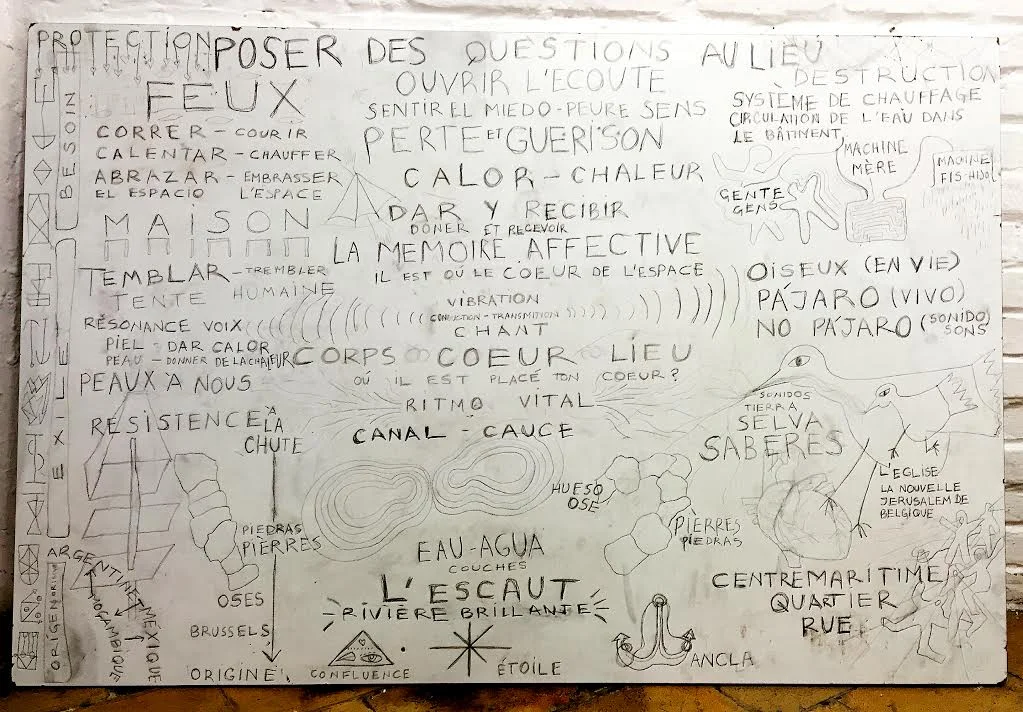 PROTECTION
POSER DES QUESTIONS AU LIEU
DESTRUCTION
BESOIN
FEUX
OUVRIR L'ECOUTE
SENTIR EL MIEDO - PEURE SENS
SYSTÈME DE CHAUFFAGE
CIRCULATION DE L'EAU DANS
LE BÂTIMENT
CORRER - COURIR
CALENTAR - CHAUFFER
ABRAZAR - EMBRASSER
EL ESPACIO L'ESPACE
PERTE ET GUERISON
MACHINE
MÈRE
MACHINE
FIS-HIJO
CALOR - CHALEUR
GENTE
GENS
MAISON
DAR Y RECIBIR
DONER ET RECEVOIR
LA MEMOIRE AFFECTIVE
IL EST OÚ LE COEUR DE L'ESPACE
TEMBLAR - TREMBLER
TENTE HUMAINE
OISEUX (EN VIE)
PÁJARO (VIVO)
NO PÁJARO (SONIDO)
SONS
VIBRATION
CONDUCTION - TRANSMITION
CHANT
RÉSONANCE VOIX
PIEL - DAR CALOR
PEAU - DONNER DE LA CHALEUR
CORPS COEUR LIEU
OÚ IL EST PLACÉ TON COEUR?
PEAUX À NOUS
EXILE
RITMO VITAL
CANAL - CAUCE
RESISTENCE À
LA
CHUTE
SONIDOS
TIERRA
SELVA
SABERES
L'EGLISE
LA NOUVELLE
JERUSALEM DE
BELGIQUE
HUESO
OSE
PIEDRAS
PIÈRRES
PIÈRRES
PIEDRAS
EAU - AGUA
COUCHES
OSES
L'ESCAUT
RIVIÈRE BRILLANTE
CENTRE MARITIME
QUARTIER
RUE
ARGENTINE
MEXIQUE
MOZAMBIQUE
ORIGEN
BRUSSELS
ORIGINE
CONFLUENCE
ÉTOILE
ANCLA